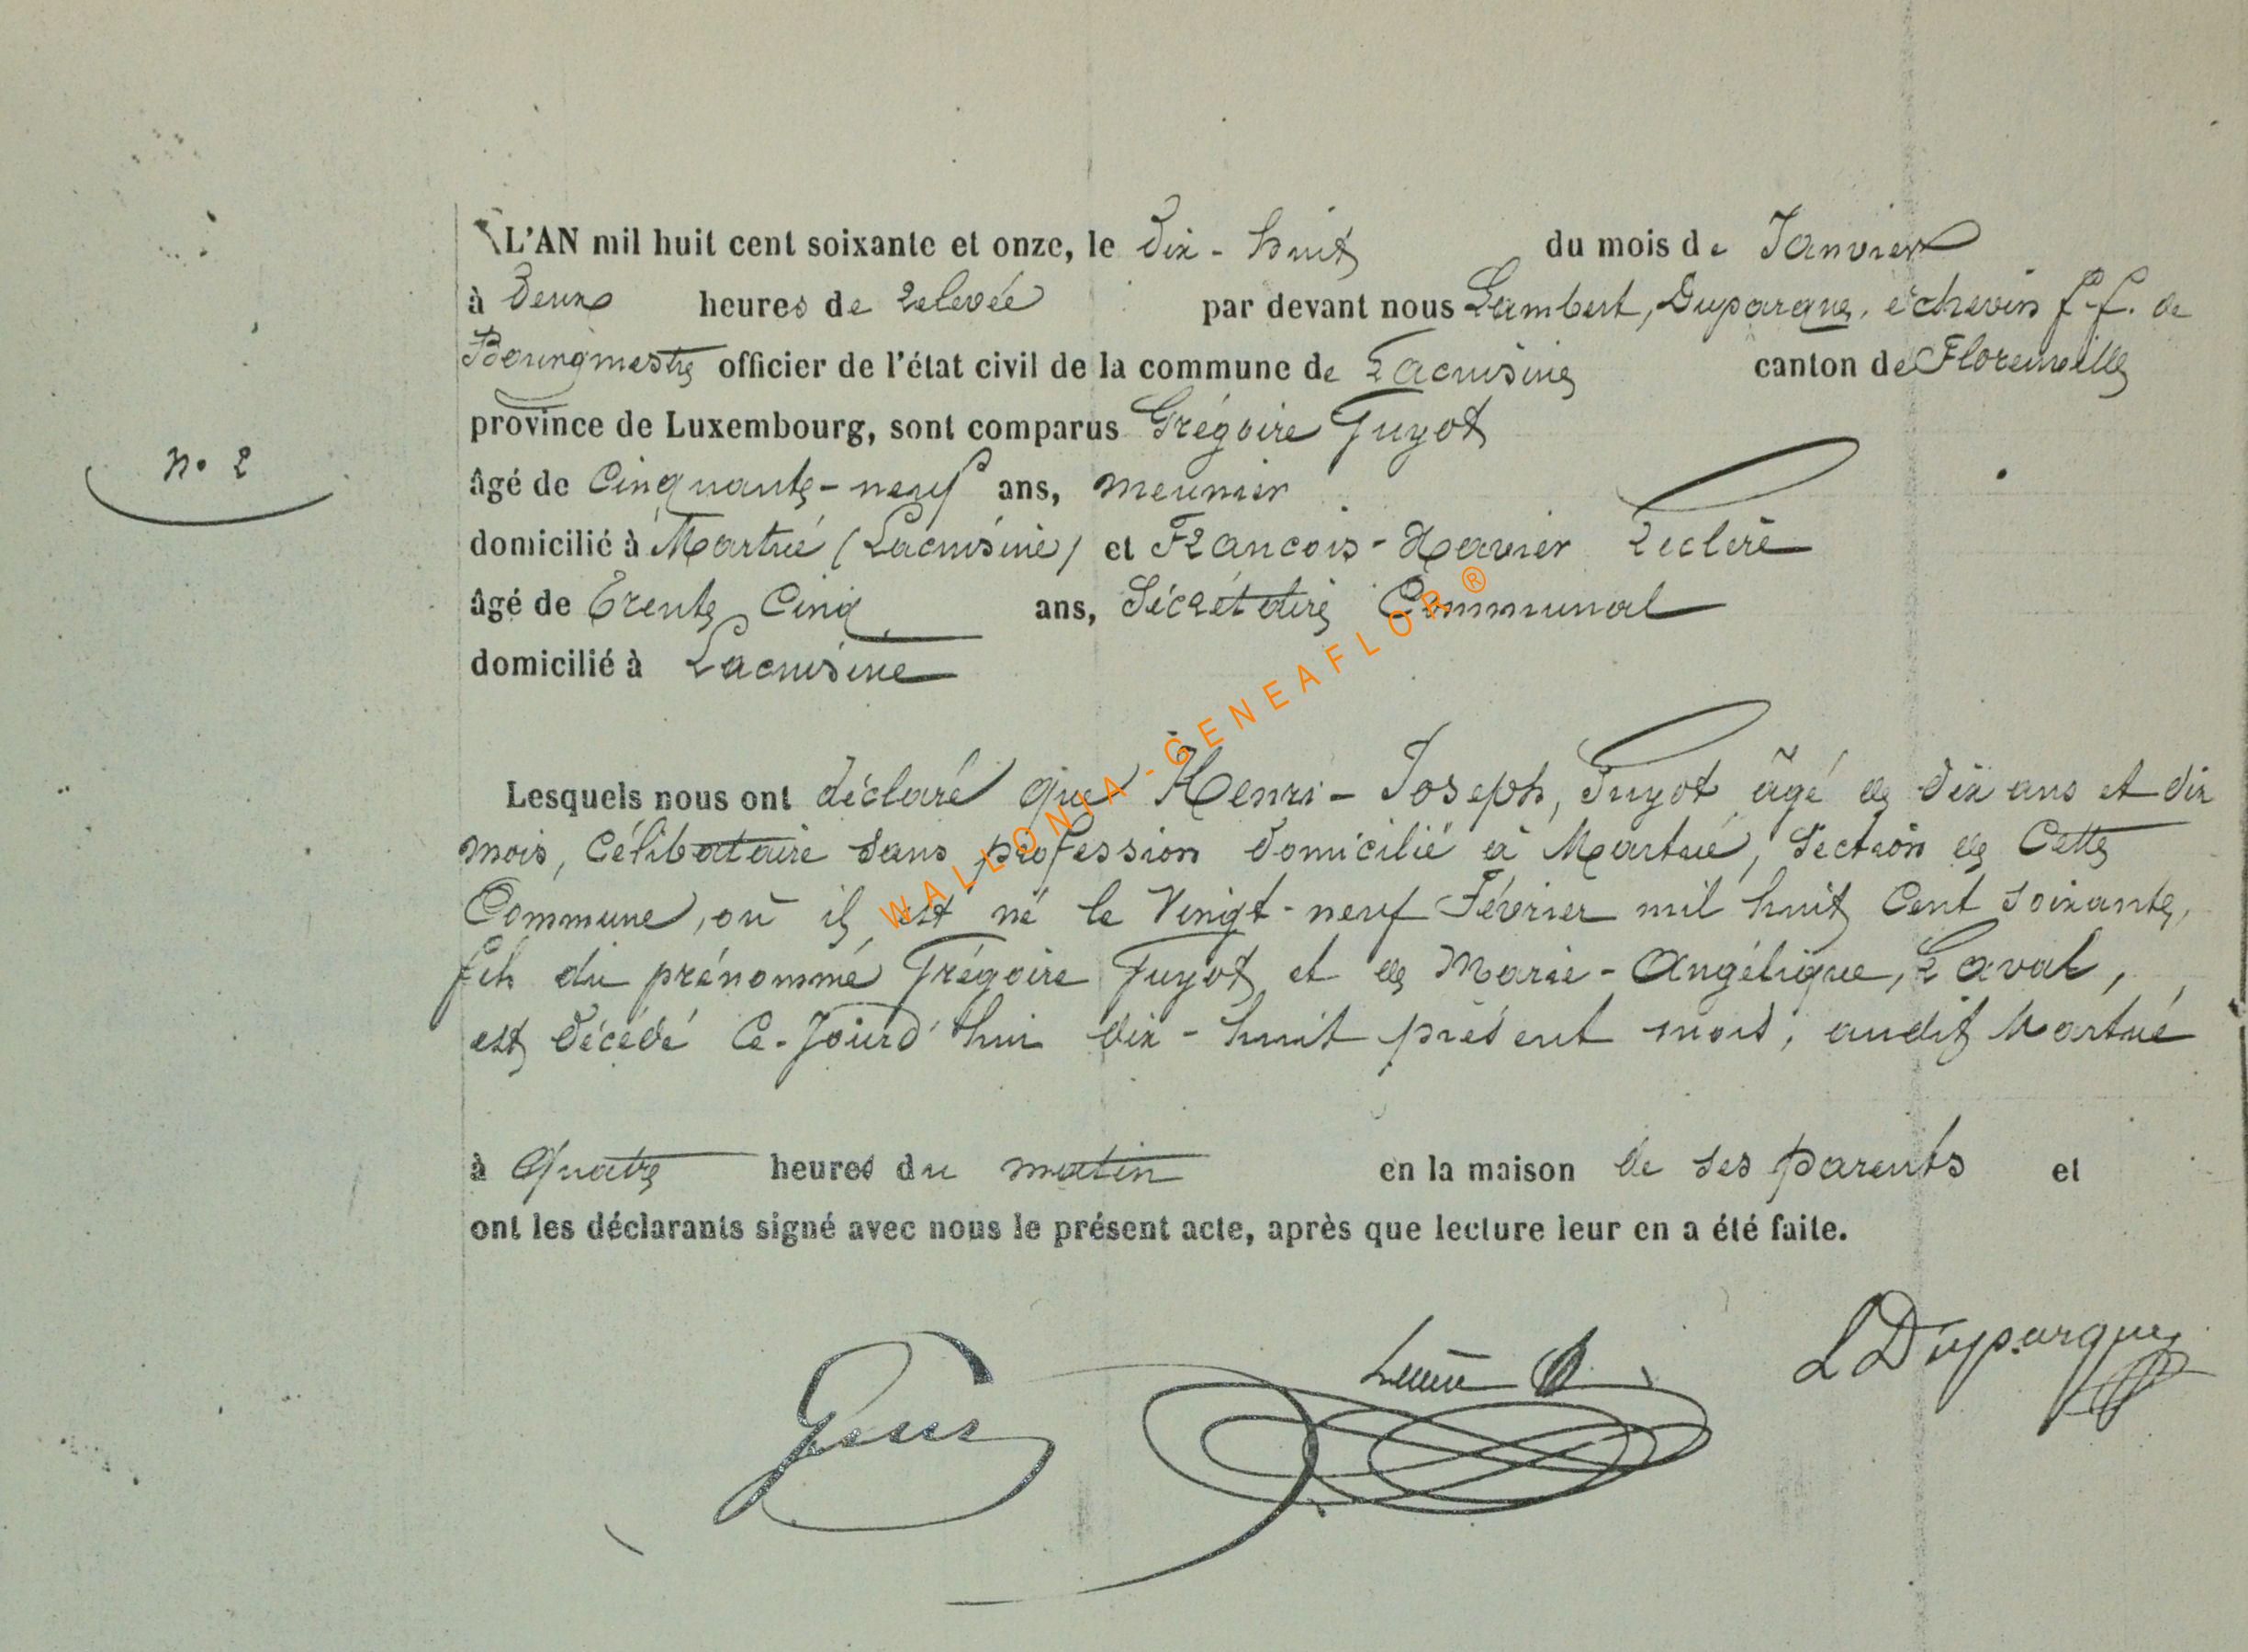 L'AN mil huit cent soixante et onze, le dix-huit du mois de Janvier
à deux heures de relevée par devant nous Lambert, Duparque, échevin f.f. de
Bourgmestre officier de l'état civil de la commune de Lacuisine canton de Florenville
province de Luxembourg, sont comparus Grégoire Guyot
n° 2
âgé de Cinquante-neuf ans, meunier
domicilié à Martué (Lacuisine) et François-Xavier Leclère
âgé de trente Cinq ans, Sécrétaire Communal
domicilié à Lacuisine
Lesquels nous ont déclaré que Henri-Joseph, Guyot âgé de dix ans et dix
mois, Célibataire sans profession domicilié à Martué, Section de Cette
Commune, où il est né le Vingt-neuf Février mil huit Cent soixante,
fils du prénommé Grégoire Guyot et de Marie-Angélique, Laval,
est décédé Ce-Jourd'hui dix-huit présent mois, audit Martué
à Quatre heures du matin en la maison de ses parents et
ont les déclarants signé avec nous le présent acte, après que lecture leur en a été faite.
L Duparque
WALLONIA-GENEAFLOR®